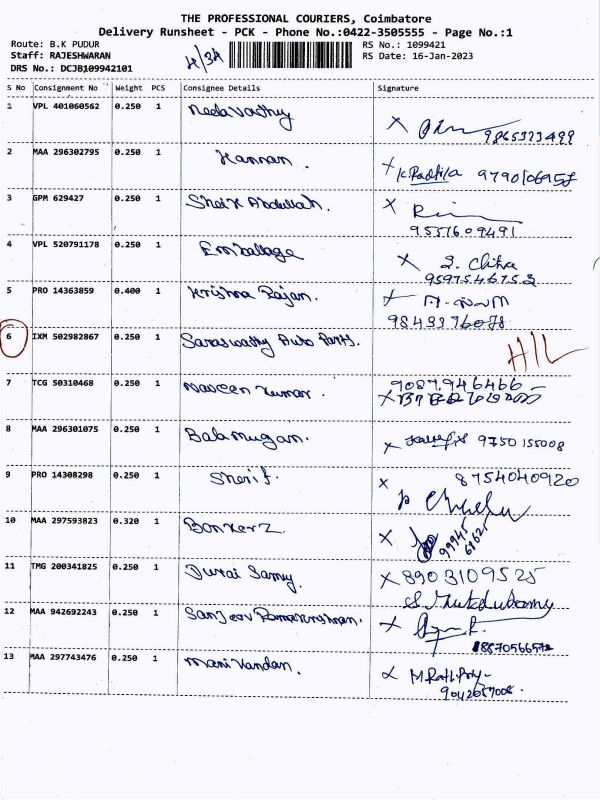 THE PROFESSIONAL COURIERS, Coimbatore
Delivery Runsheet - PCK - Phone No.:0422-3505555 - Page No.:1
Route: B.K PUDUR RS No.: 1099421
Staff: RAJESHWARAN RS Date: 16-Jan-2023
DRS No.: DCJB109942101
S No Consignment No Weight PCS Consignee Details Signature
1 VPL 401060562 0.250 1 Nedavathy
9865323499
2 MAA 296302795 0.250 1 Kannan. K.Radhika 9790106957
3 GPM 629427 0.250 1 Sheik Abdullah.
9551609491
4 VPL 520791178 0.250 1 Emballage S. Chitra
9597546752
5 PRO 14363859 0.400 1 Krishna Rajan.
9843376078
6 IXM 502982867 0.250 1 Saraswathy Auto Parts. H/L
7 TCG 50310468 0.250 1 Naveen Kumar. 9087946466
8 MAA 296301075 0.250 1 Balamugan. 9750155008
9 PRO 14308298 0.250 1 Sherif. 8754040920
10 MAA 297593823 0.320 1 Bonkerz. 99945
61625
11 TMG 200341825 0.250 1 Durai Samy. 8903109525
12 MAA 942692243 0.250 1 Sanjeev Ramakrishnan.
8870566572
13 MAA 297743476 0.250 1 Manikandan.
9042057008